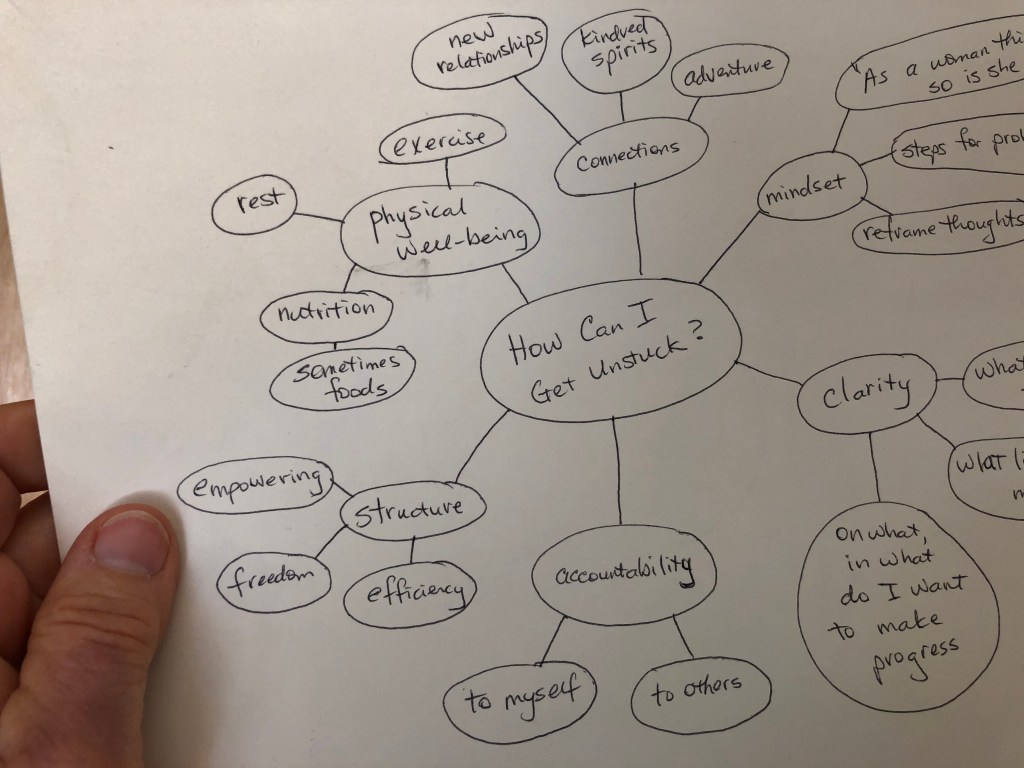 new
relationships
kindred
spirits
adventure
connections
As a woman
so is she
steps for
mindset
reframe thoughts
exercise
rest
physical
well-being
nutrition
sometimes
foods
How Can I
Get Unstuck?
clarity
what
what
empowering
structure
freedom
efficiency
accountability
to myself
to others
On what,
in what
do I want
to make
progress